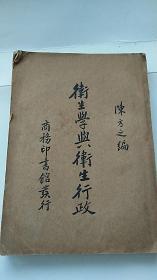 陳方之編
衛生學與衛生行政
商務印書館發行